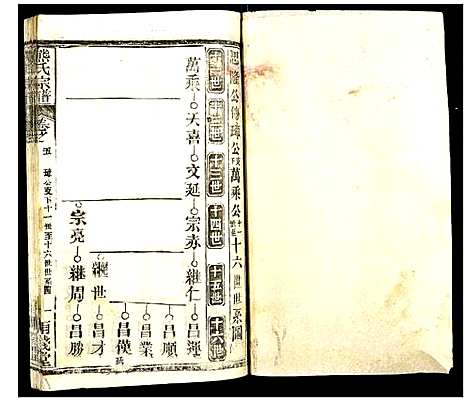 思隆公位璋公支下萬乘公十一世至十六世世系圖
十一世 十二世 十三世 十四世 十五世 十六世
萬乘 天喜 文延 宗赤 繼仁 昌運
昌順
昌業
昌儀
繼世 昌才
宗亮 繼周 昌勝
熊氏宗譜 五 璋公支下十一世至十六世世系圖